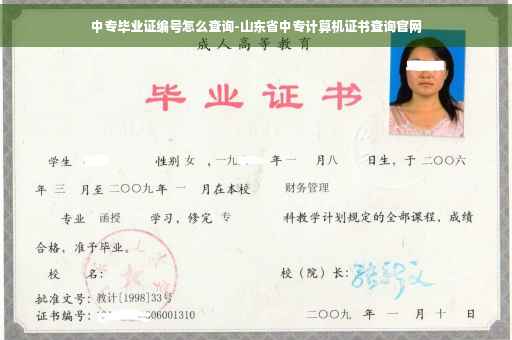 中专毕业证编号怎么查询-山东省中专计算机证书查询官网
成人高等教育
毕业证书
学生 性别 女 ,一九 年一 月八 日生,于二〇〇六
年 三 月至二〇〇九年 一 月在本校 财务管理
专业 函授 学习,修完 专 科教学计划规定的全部课程,成绩
合格,准予毕业。
校 名: 校(院)长:
批准文号:教计[1998]33号
证书编号: 06001310 二〇〇九 年 一 月 十 日